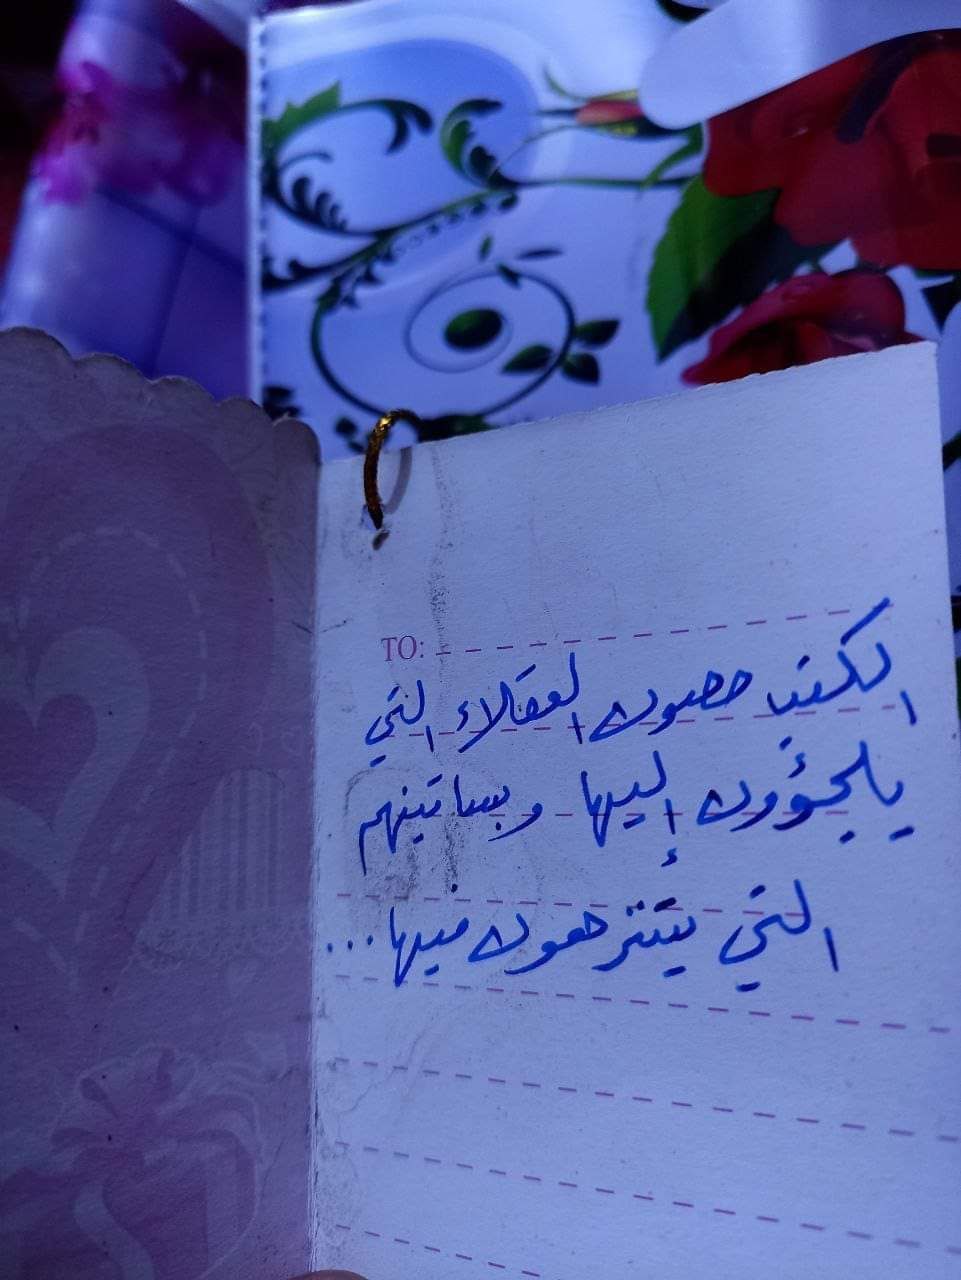 TO:
الكتب حصون العقلاء التي
يلجؤون إليها وبساتينهم
التي يتنزهون فيها...